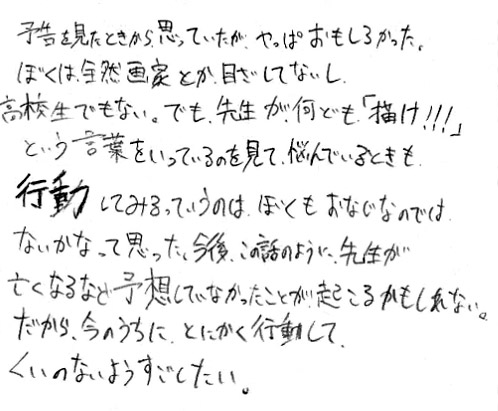 予告を見たときから思っていたが、やっぱおもしろかった。
ぼくは、全然画家とか目ざしてないし、
高校生でもない。でも、先生が、何ども「描け!!!」
という言葉をいっているのを見て、悩んでいるときも、
行動してみるっていうのは、ぼくもおなじなのでは
ないかなって思った。今後、この話のように、先生が
亡くなるなど予想していなかったことが起こるかもしれない。
だから、今のうちに、とにかく行動して、
くいのないようすごしたい。